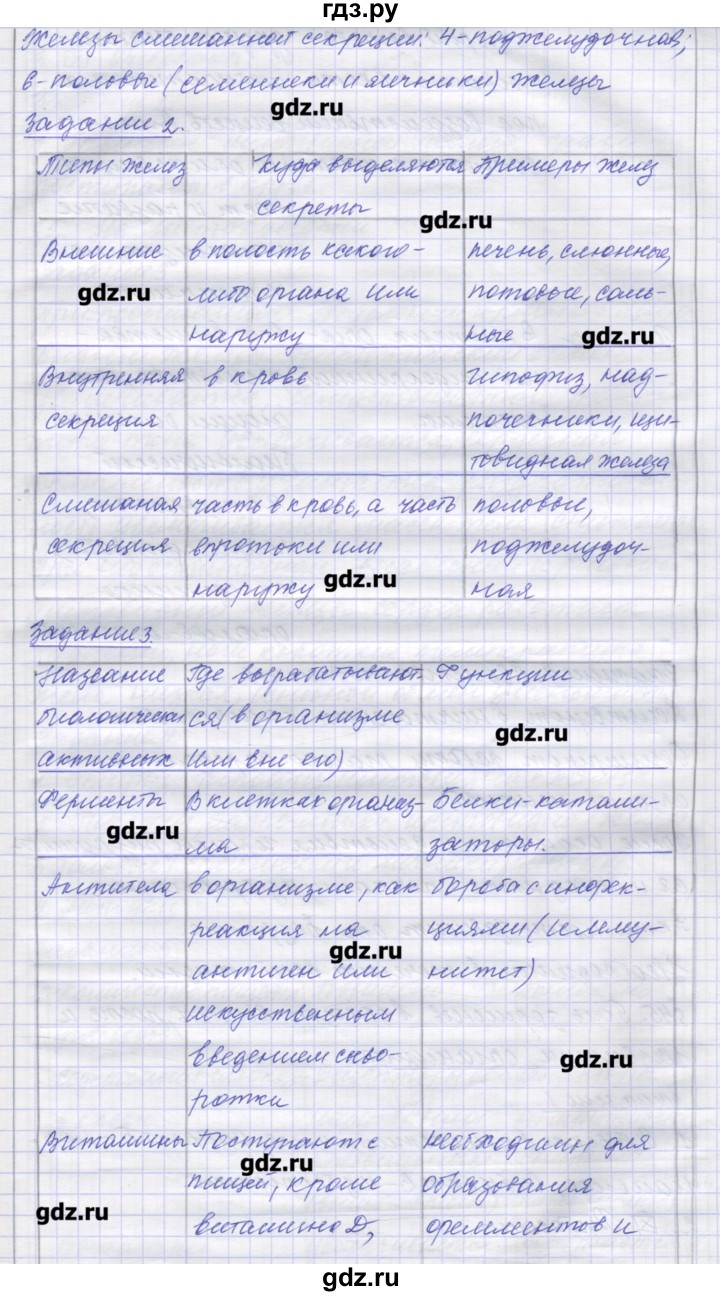 гдз.ру
Железы смешанной секреции: 4-поджелудочная;
6-половые (семенники и яичники) железы
gdz.ru
Задание 2.
Типы желез куда выделяются Примеры желез
секреты
gdz.ru
Внешние в полость какого- печень, слюнные,
gdz.ru либо органа или потовые, саль-
наружу ные gdz.ru
Внутренняя в кровь гипофиз, над-
секреция почечники, щи-
товидная железа
Смешаная часть в кровь, а часть половые,
секреция в протоки или поджелудоч-
наружу gdz.ru ная
Задание 3.
Название Где вырабатывают- Функции
биологическая ся (в организме gdz.ru
активных или вне его)
Ферменты В клетках организ- Белки-катали-
gdz.ru ма заторы.
Антитела в организме, как борьба с инфек-
реакция на циями (имму-
антиген или gdz.ru нитет)
искусственным
введением сыво- gdz.ru
ротки
Витамины Поступают с необходимы для
gdz.ru
пищей, кроме образования
gdz.ru витамина D, ферментов и
gdz.ru